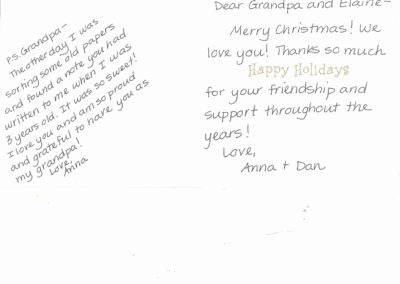 P.S. Grandpa-
The other day I was
sorting some old papers
and found a note you had
written to me when I was
3 years old. It was so sweet!
I love you and am so proud
and grateful to have you as
my grandpa!
Love,
Anna
Dear Grandpa and Elaine-
Merry Christmas! We
love you! Thanks so much
Happy Holidays
for your friendship and
support throughout the
years!
Love,
Anna + Dan